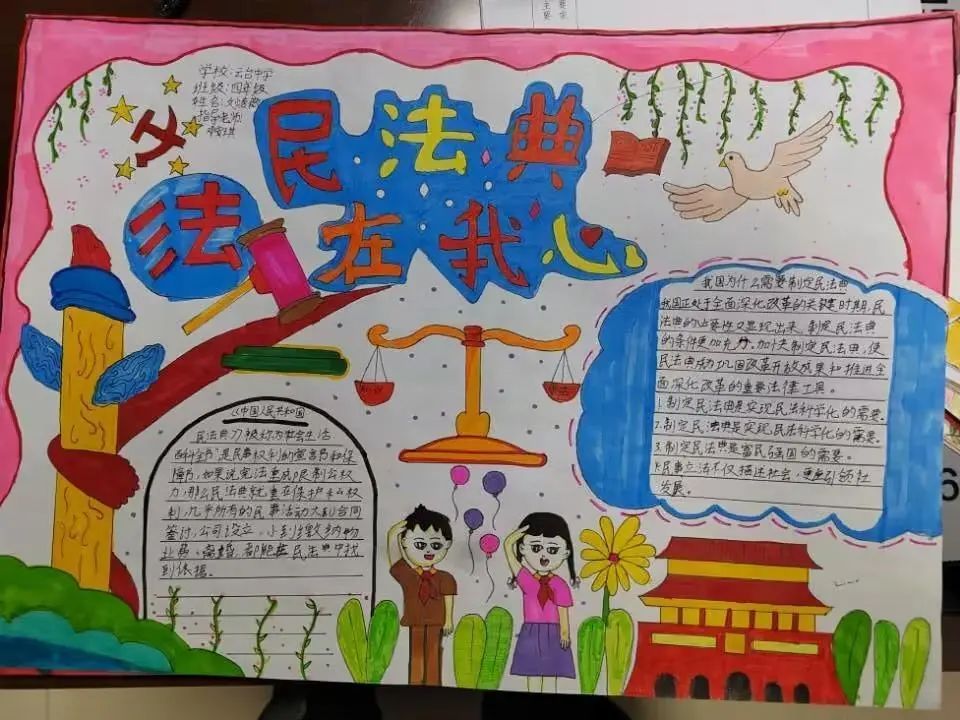 主要
要求
学校：云台中学
班级：四年级
姓名：
指导老师
民法典
在我心
法
我国为什么需要制定民法典
我国正处于全面深化改革的关键时期，民
法典的必要性又显现出来，制定民法典
的条件更加充分，加快制定民法典，使
民法典成为巩固改革开放成果和推进全
面深化改革的重要法律工具。
1.制定民法典是实现民法科学化的需要。
2.制定民法典是实现民法科学化的需要。
3.制定民法典是富民强国的需要。
民事立法不仅描述社会，更应引领社
发展。
《中国人民共和国
民法典》被称为"社会生活
百科全书"是民事权利的宣言书和保
障书，如果说宪法重在限制公权
力，那么民法典就重在保护私权
利，几乎所有的民事活动大到合同
签订，公司设立，小到缴纳物
业费、离婚，都能在民法典中找
到依据。
6